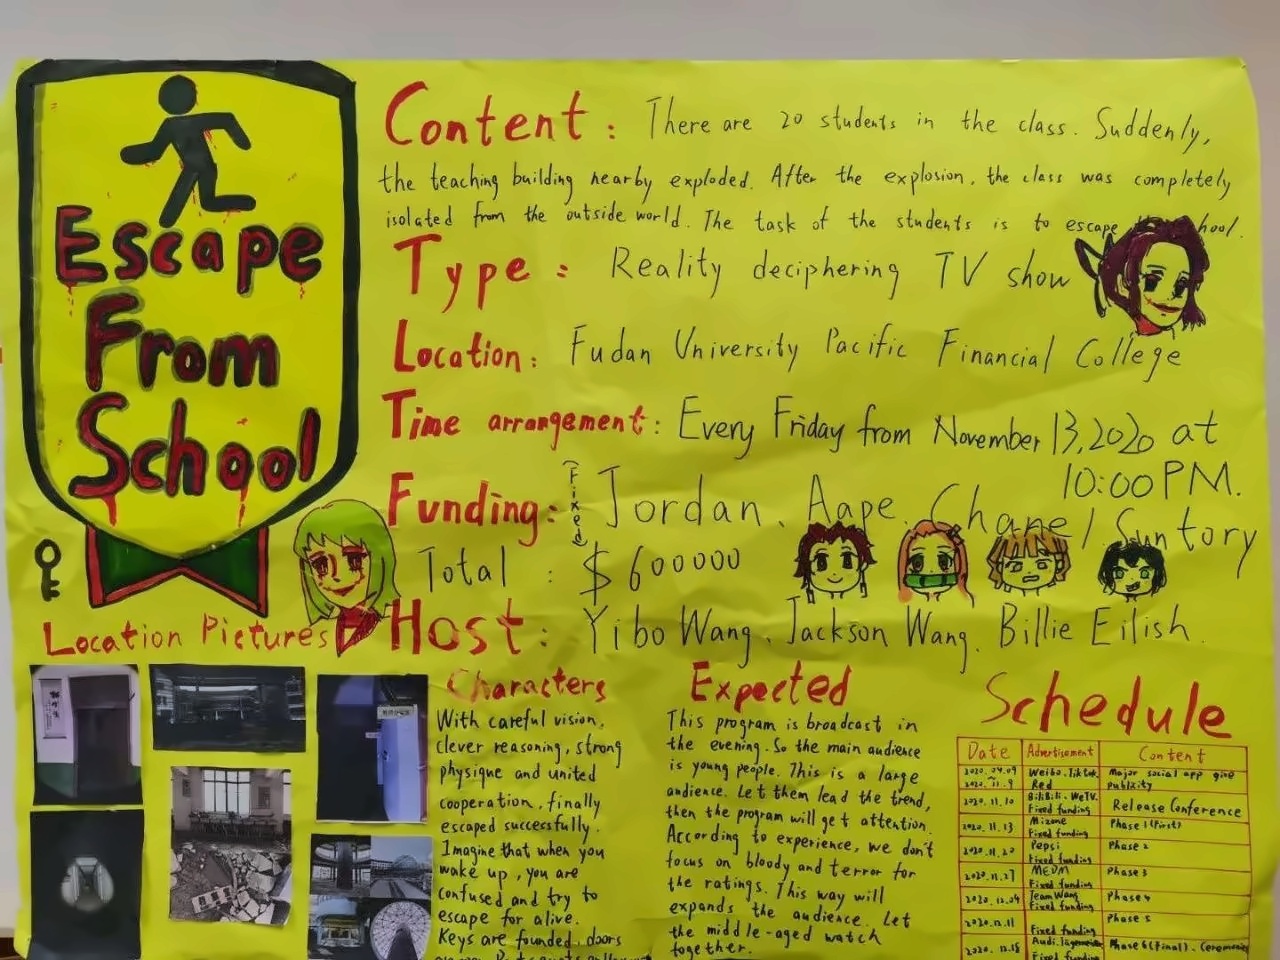 Escape
From
School
Content: There are 20 students in the class. Suddenly,
the teaching building nearby exploded. After the explosion, the class was completely
isolated from the outside world. The task of the students is to escape hool.
Type: Reality deciphering TV show
Location: Fudan University Pacific Financial College
Time arrangement: Every Friday from November 13, 2020 at
10:00 PM.
Funding: (Fixed) Jordan、Aape、Chanel、Suntory
Total: $600000
Host: Yibo Wang、Jackson Wang、Billie Eilish.
Location Pictures
Characters
With careful vision,
clever reasoning, strong
physique and united
cooperation, finally
escaped successfully.
Imagine that when you
wake up, you are
confused and try to
escape for alive.
Keys are founded, doors
Expected
This program is broadcast in
the evening. So the main audience
is young people. This is a large
audience. Let them lead the trend,
then the program will get attention.
According to experience, we don't
focus on bloody and terror for
the ratings. This way will
expands the audience. Let
the middle-aged watch
together.
Schedule
Date Advertisement Content
2020.11.9 Weibo. Tiktok. Red Major social app give publizity
2020.11.10 BiliBili. WeTV. Fixed funding Release Conference
2020.11.13 Mizone Fixed funding Phase 1(First)
2020.11.20 Pepsi Fixed funding Phase 2
2020.11.27 Fixed funding Phase 3
2020.12.04 TeamWang Fixed funding Phase 4
2020.12.11 Fixed funding Phase 5
2020.12.18 Audi. Fixed funding Phase 6(Final).